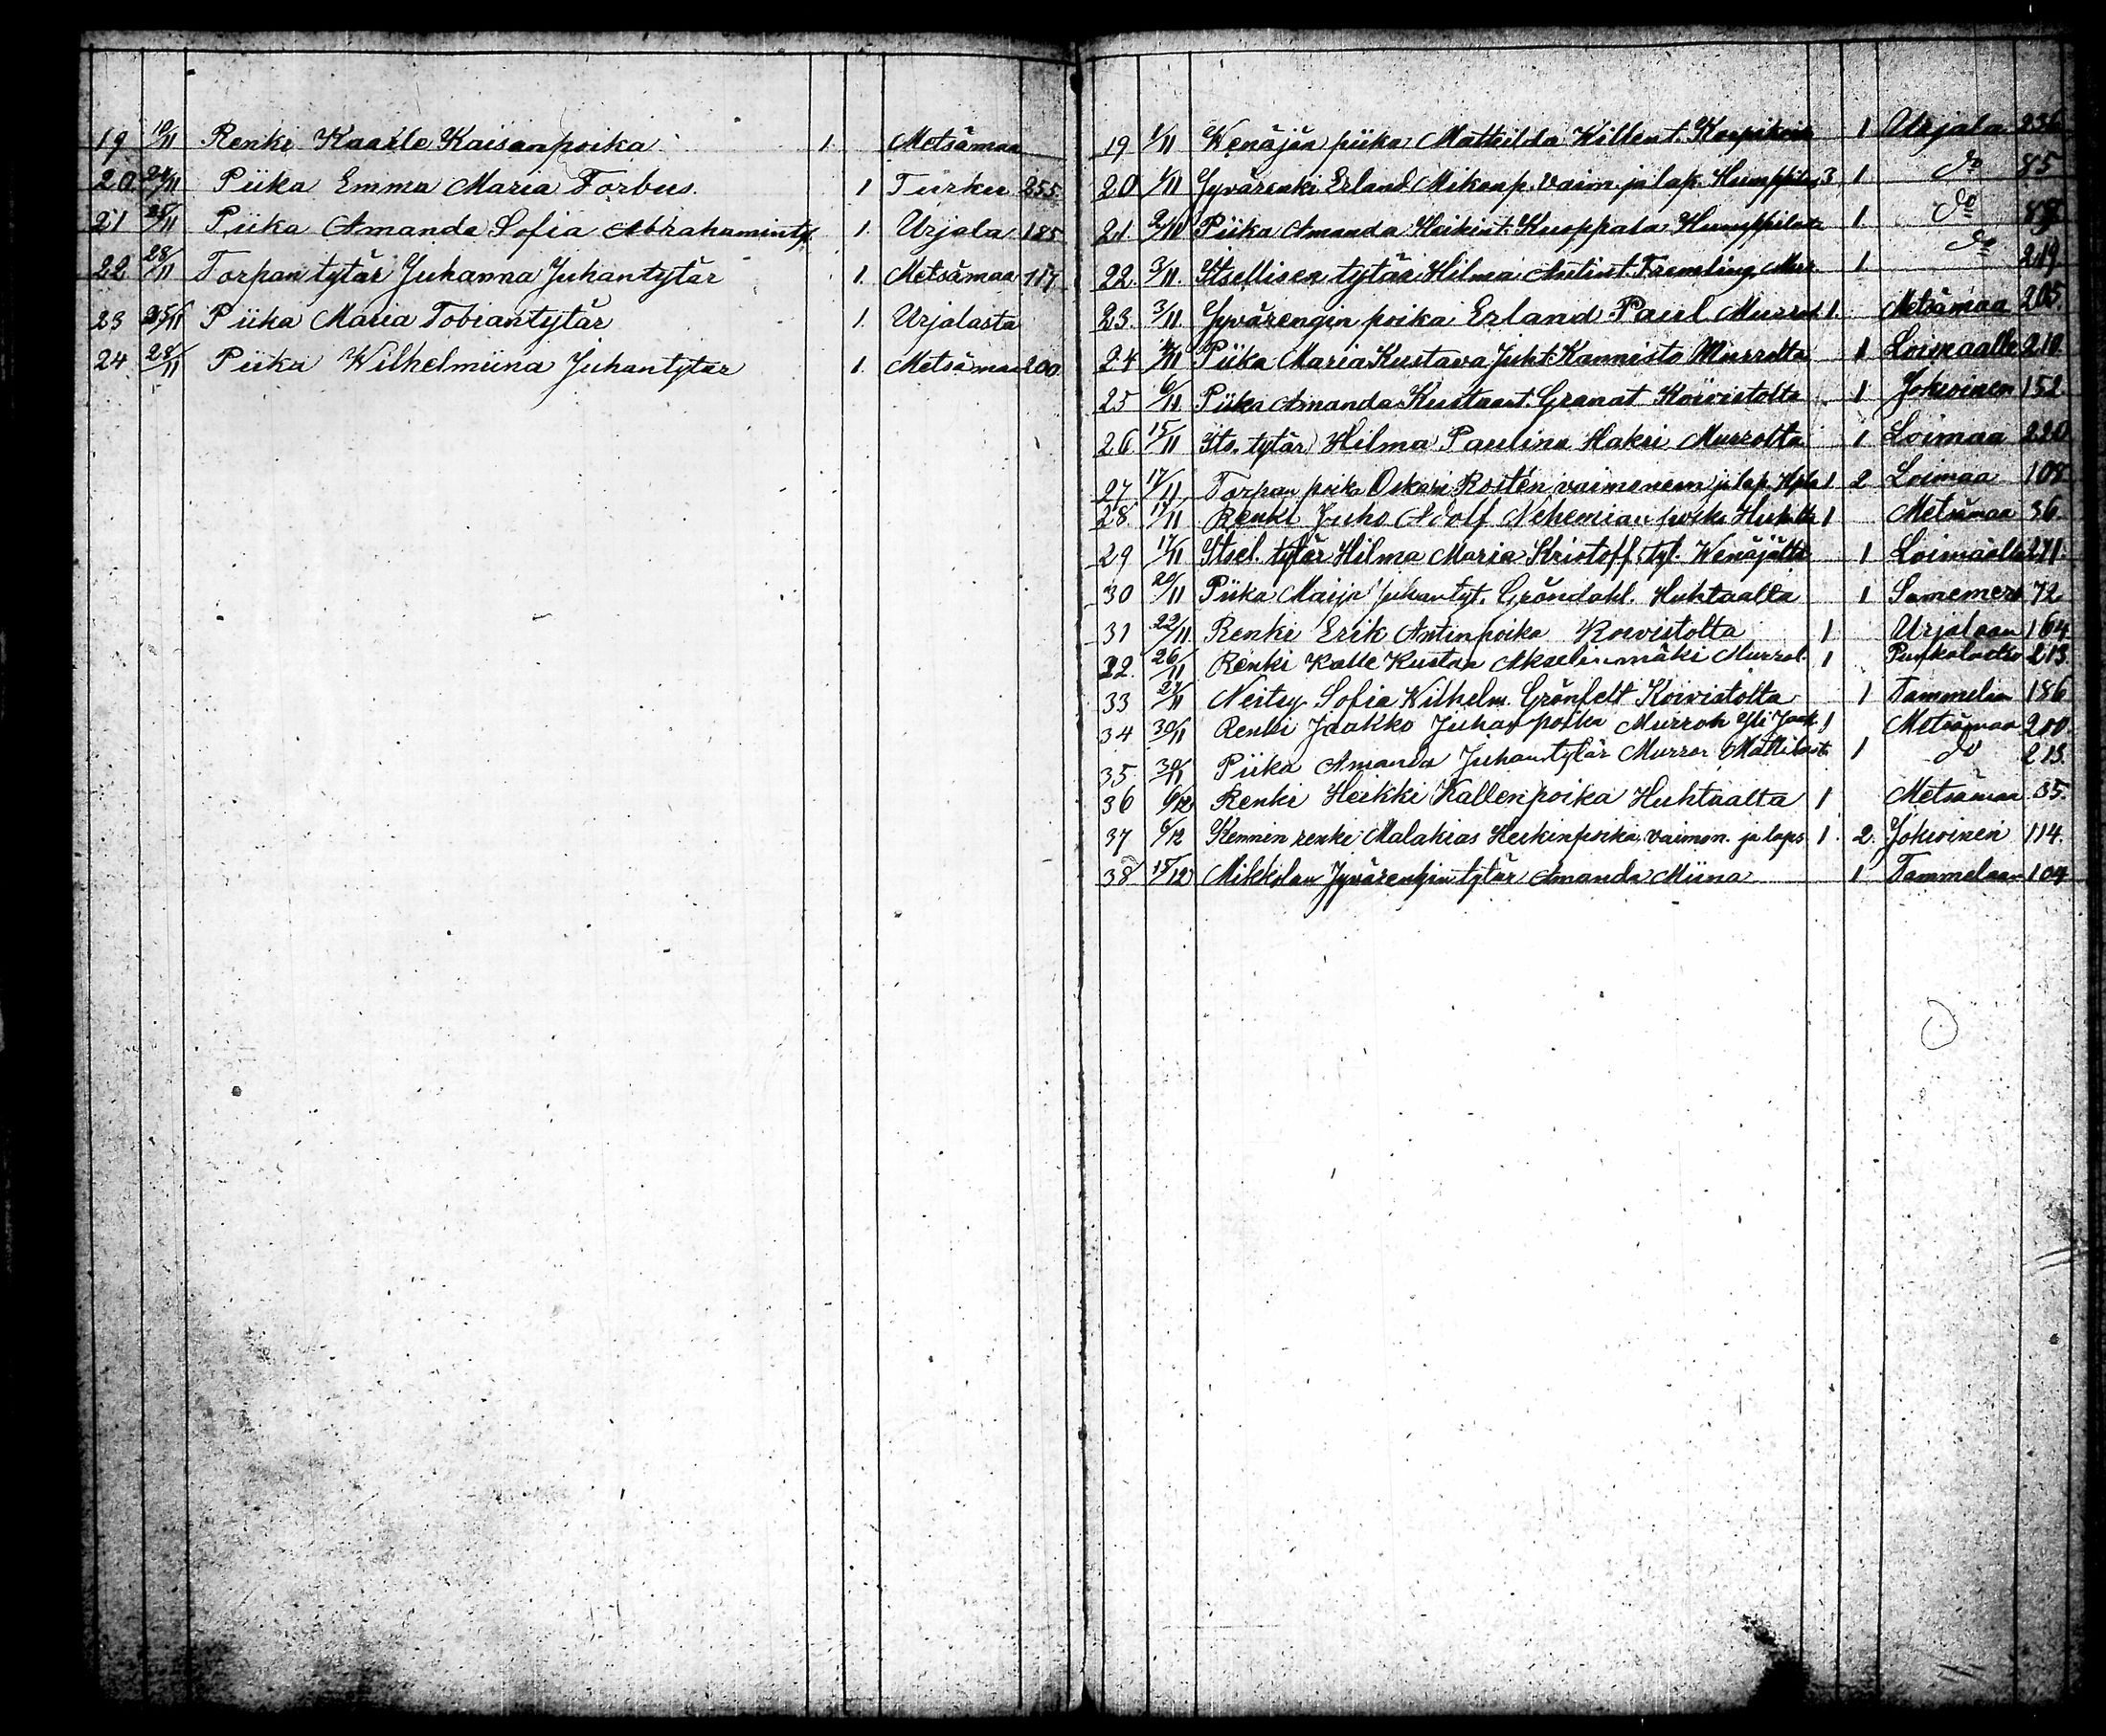 19 19/11 Renki Kaarle Kaisanpoika 1. Metsämaa
20. 24/11 Piika Emma Maria Forbus. 1 Turku 255
21 25/11 Piika Amanda Sofia Abrahamintyt. 1. Urjala 185
22. 28/11 Torpan tytär Juhanna Juhantytär 1. Metsämaa 117
23 Piika Maria Tobiantytär 1. Urjalasta
24 28/11 Piika Wilhelmiina Juhantytär 1. Metsämaa 200
19 1/11 Wenäjän piika Matteilda Willent. 1 Urjala 236
20 1/11 Jyvärenki Erland Mikonp. vaim. ja lap. 3 1 do 85
21. 2/11 Piika Amanda Heikint. Kuoppala Humppilasta 1. do
22. 3/11. Itsellisen tytär Hilma Antint. Fremling Mur. 1. do 219
23. 3/11. Jyvärengin poika Erland Paul Murrol. 1. Metsämaa 205.
24 Piika Maria Kustava Juh.t. Kannisto Murrolta 1 Loimaalle 210.
25 6/11. Piika Amanda Kustaat. Granat Koivistolta 1 Jokioinen 152
26. 15/11 Its. tytär Hilma Paulina Hakri Murrolta 1 Loimaa
27 17/11. Torpan poika Oskari Rostén vaimoneen ja lap. 1 2 Loimaa 108
28. 17/11 Renki Juho Adolf Nehemian poika 1 Metsämaa 36
29 17/11 Itsel. tytär Hilma Maria Kristoff.tyt. Wenäjältä 1 Loimaalle 271.
30 20/11 Piika Maija Juhantyt. Gröndahl. Huhtaalta 1 72
31 22/11. Renki Erik Antinpoika Koivistolta 1 Urjalaan 164
32. 26/11 Renki Kalle Kustaa Akselinmäki Murrol. 1 213
33 27/11 Neitsy Sofia Wilhelm. Grönfelt Koivistolta 1 Tammelan 186
34 30/11 Renki Jaakko Juhanpoika Murron Yli 1 Metsämaa 200
35. 30/11 Piika Amanda Juhantytär Murron Mattilast. 1 do 213.
36 6/12 Renki Heikki Kallenpoika Huhtaalta 1 Metsämaa 35.
37 6/12 Kennin renki Malakias Heikinpoika, vaimon. ja laps. 1. 2. Jokioinen 114.
38 15/12 Mikkolan Jyvärengin tytär Amanda Miina 1 Tammelaan 104